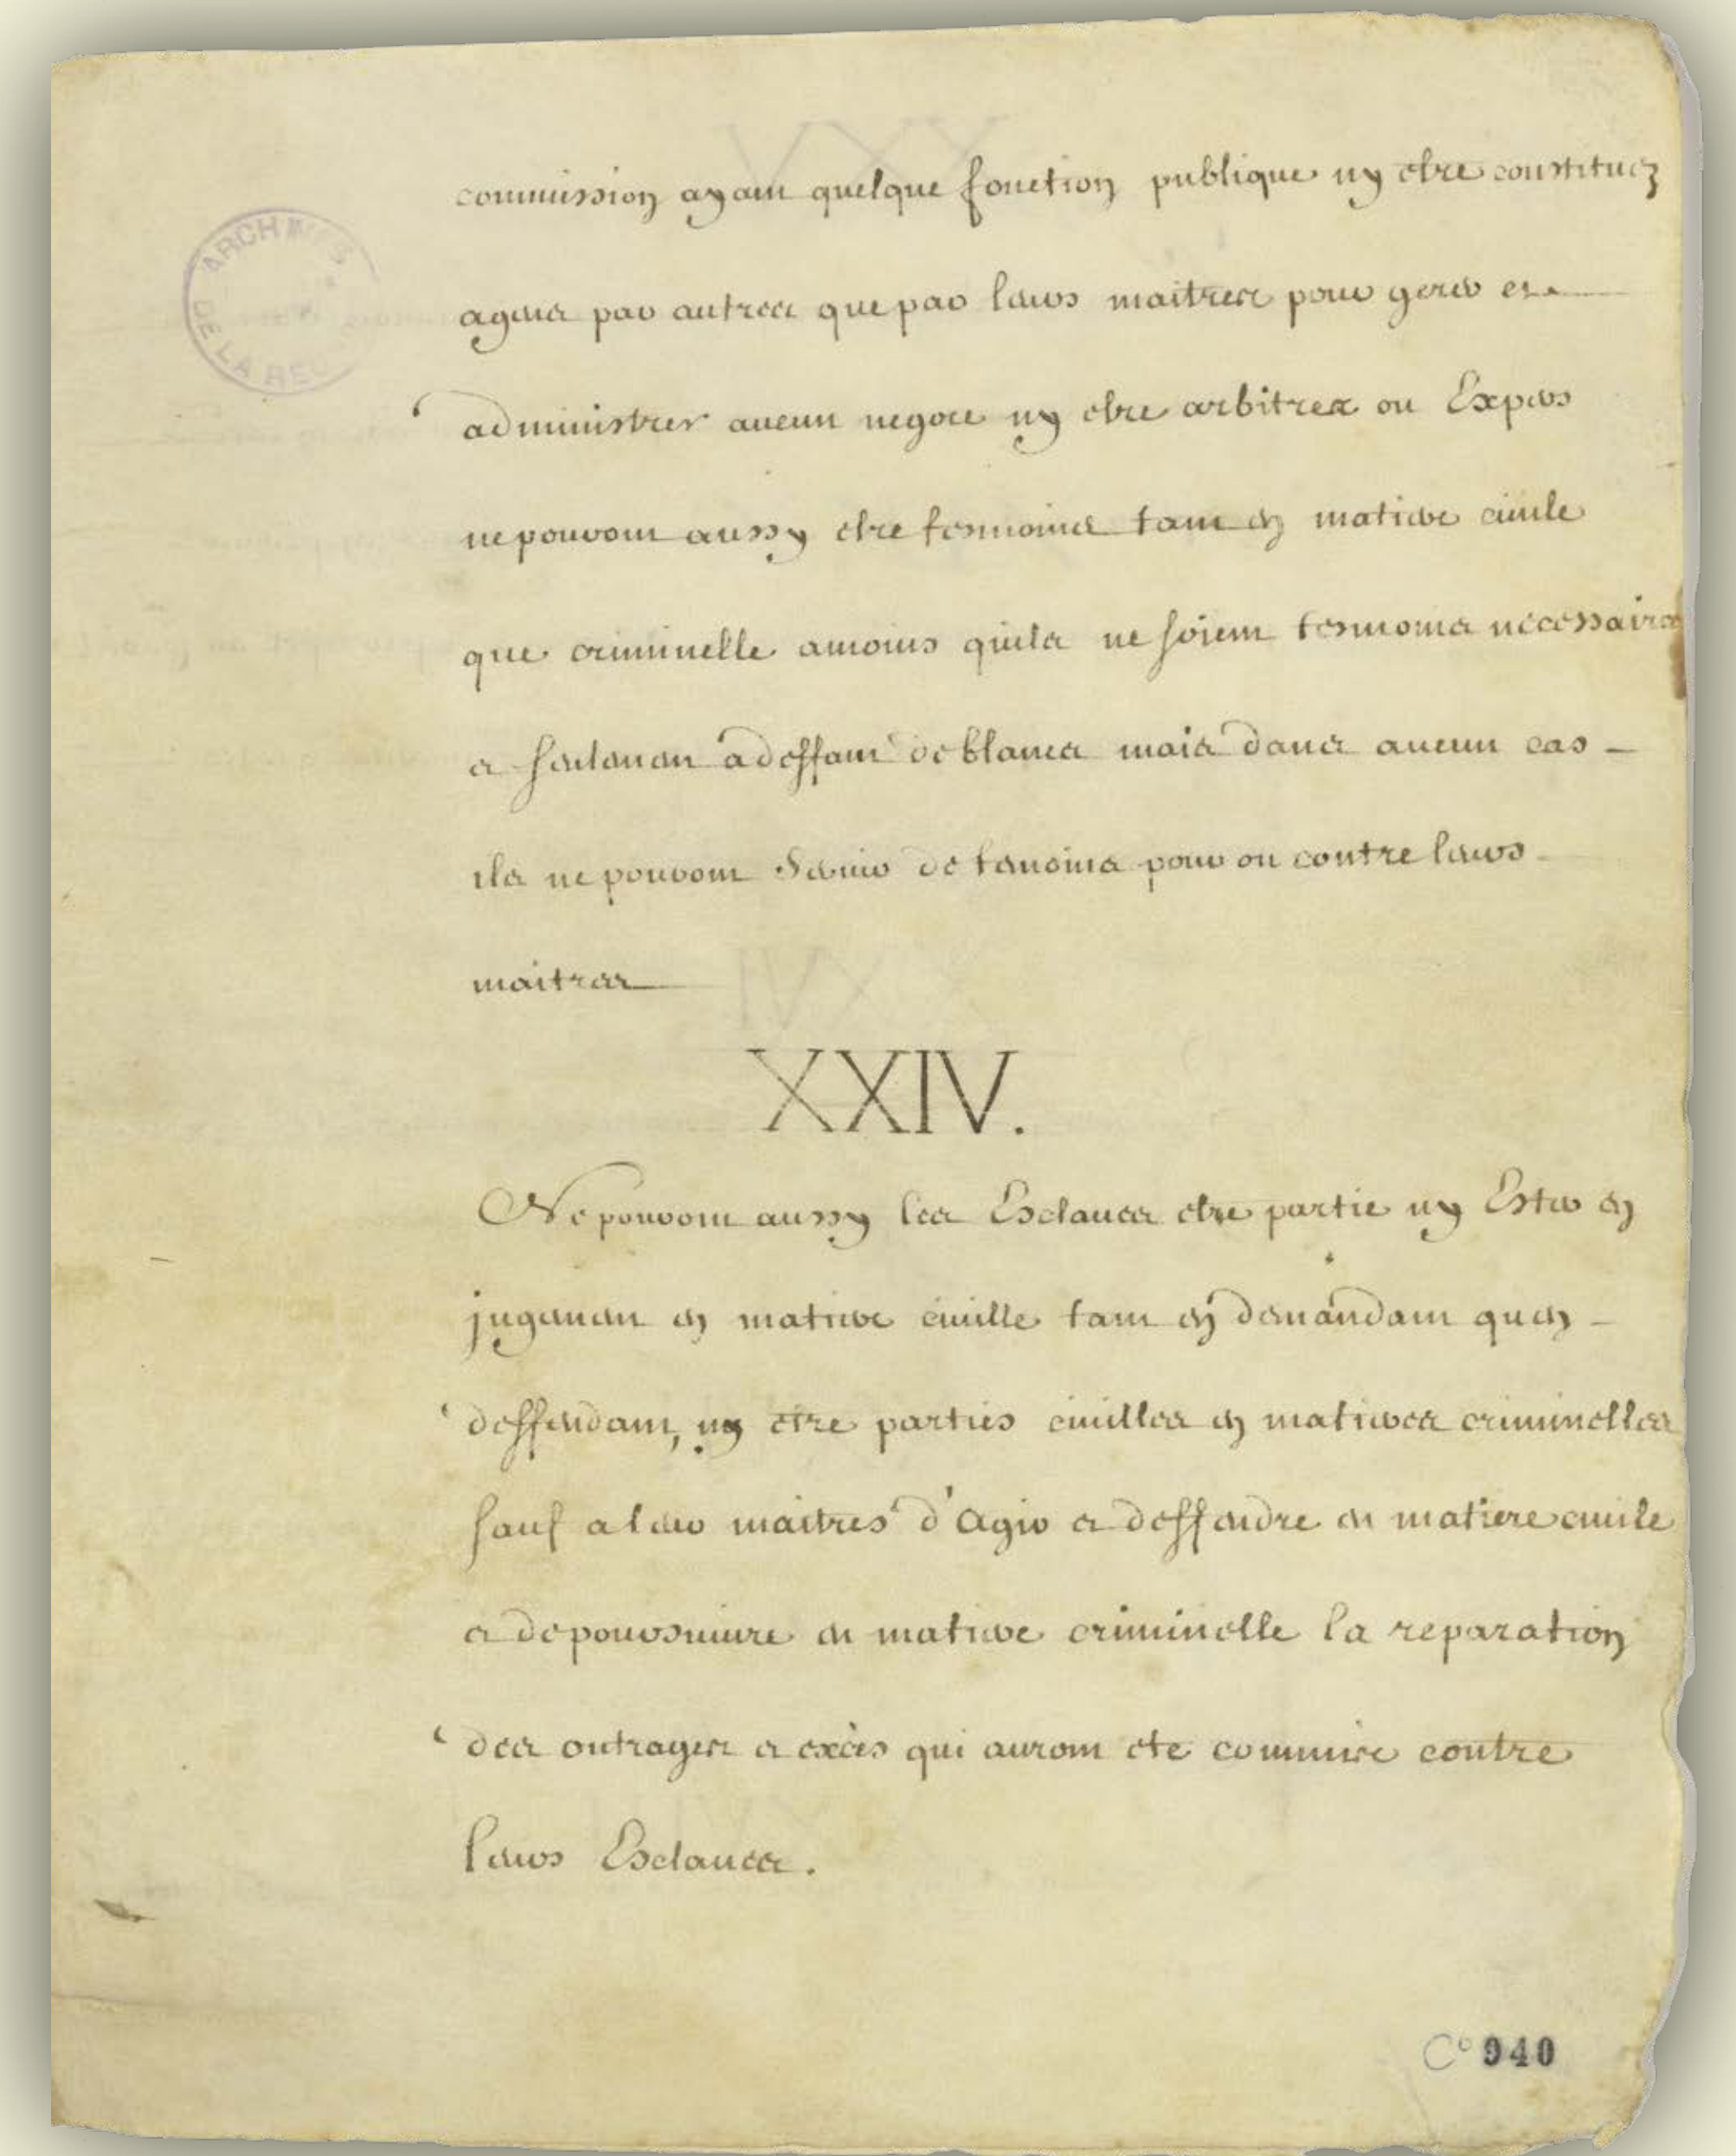 commission ayant quelque fonction publique ny etre constituez
agens par autres que par leurs maitres pour gerer et
administrer aucun negoce ny etre arbitres ou Experts
ne pouvont aussy etre tesmoins tant en matiere civile
que criminelle amoins quils ne soient tesmoins necessaires
et seulement a deffaut de blancs mais dans aucun cas
ils ne pouvont servir de temoins pour ou contre leurs
maitres
XXIV.
Ne pouvont aussy les Esclaves etre partie ny Ester en
jugement en matiere civille tant en demandant quen
deffendant, ny etre parties civilles en matieres criminelles
sauf a leur maitres d'Agir et deffendre en matiere civile
et de poursuivre en matiere criminelle la reparation
des outrages et excès qui auront ete commis contre
leurs Esclaves.
ARCHIVES
DE LA REU
C° 940